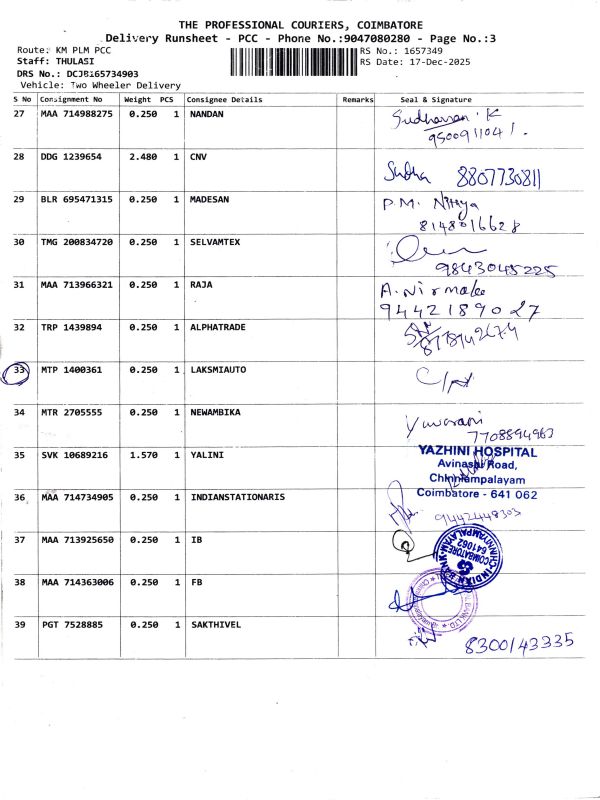 THE PROFESSIONAL COURIERS, COIMBATORE
Delivery Runsheet - PCC - Phone No.:9047080280 - Page No.:3
Route: KM PLM PCC RS No.: 1657349
Staff: THULASI RS Date: 17-Dec-2025
DRS No.: DCJB165734903
Vehicle: Two Wheeler Delivery
S No Consignment No Weight PCS Consignee Details Remarks Seal & Signature
27 MAA 714988275 0.250 1 NANDAN Sudharsan. K
9500911041.
28 DDG 1239654 2.480 1 CNV Sudha 8807730811
29 BLR 695471315 0.250 1 MADESAN P.M. Nithya
8148016628
30 TMG 200834720 0.250 1 SELVAMTEX
9843045225
31 MAA 713966321 0.250 1 RAJA A. Nirmala
9442189027
32 TRP 1439894 0.250 1 ALPHATRADE
33 MTP 1400361 0.250 1 LAKSMIAUTO
34 MTR 2705555 0.250 1 NEWAMBIKA Yuvarani
7708894963
35 SVK 10689216 1.570 1 YALINI YAZHINI HOSPITAL
Avinashi Road,
Chinniampalayam
Coimbatore - 641 062
36 MAA 714734905 0.250 1 INDIANSTATIONARIS
9442448303
37 MAA 713925650 0.250 1 IB
COIMBATORE
641062
38 MAA 714363006 0.250 1 FB
39 PGT 7528885 0.250 1 SAKTHIVEL 8300143335